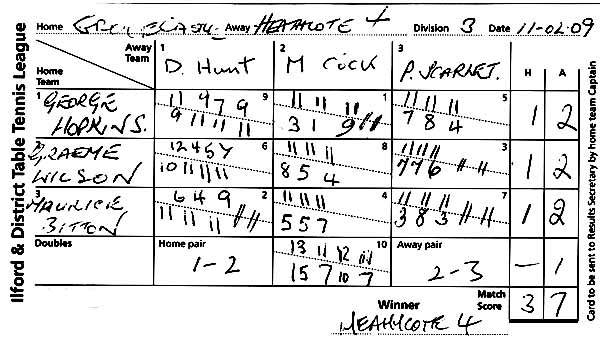 Ilford & District Table Tennis League
Home Away HEATHCOTE 4 Division 3 Date 11-02-09
Away Team 1 D. Hunt 2 M COCK 3 P. SCARNET. H A
Home Team
1 GEORGE HOPKINS. 11 4 7 9 9 11 11 1 5 1 2
9 11 11 11 3 1 9 11 7 8 4
2 GRAEME WILSON 6 11 11 11 8 11 11 11 3 1 2
10 11 11 11 8 5 4 7 7 6 11 11
3 MAURICE BITTON 6 4 9 2 11 11 11 4 11 11 11 7 1 2
11 11 11 5 5 7 3 8 3 11 11
Doubles Home pair 13 11 12 11 10 Away pair
1-2 15 7 10 7 2-3 — 1
Winner Match Score 3 7
HEATHCOTE 4
Card to be sent to Results Secretary by home team Captain